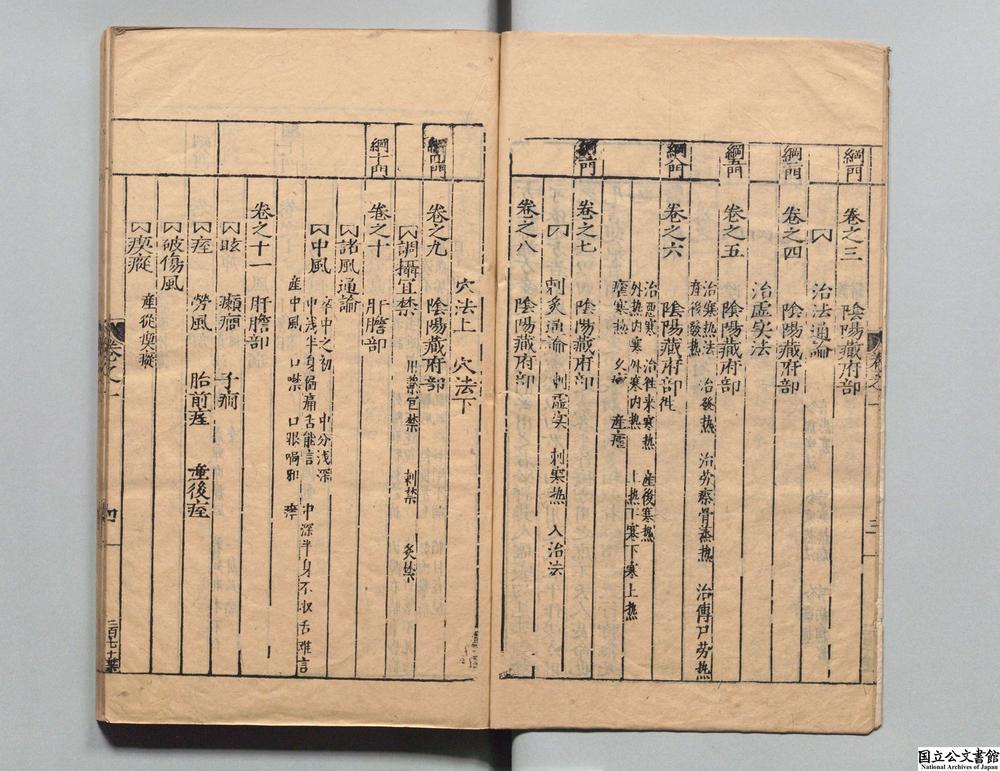 卷之三　陰陽藏府部
治法通論
卷之四　陰陽藏府部
治虛实法
卷之五　陰陽藏府部
治寒熱法　治發熱　治劳瘵骨蒸熱　治傳尸劳熱
產後發熱
卷之六　陰陽藏府部
治惡寒　治徃来寒熱　產後寒熱
外熱内寒外寒内熱　上熱下寒下寒上熱
瘧寒熱　久瘧　產瘧
卷之七　陰陽藏府部
刺灸通論　刺虛实　刺寒熱　八治法
卷之八　陰陽藏府部
穴法上　穴法下
卷之九　陰陽藏府部
調攝宜禁　用藥宜禁　刺禁　灸禁
綱十門
卷之十　肝膽部
諸風通論
中風　卒中之初　中分浅深
中浅半身偏痛舌能言　中深半身不收舌难言
產中風　口噤　口眼喎邪
卷之十一　肝膽部
眩　癲癎　子癎
痓　勞風　胎前痓　產後痓
破傷風
瘈瘲　產後瘈瘲
三
四
国立公文書館
National Archives of Japan